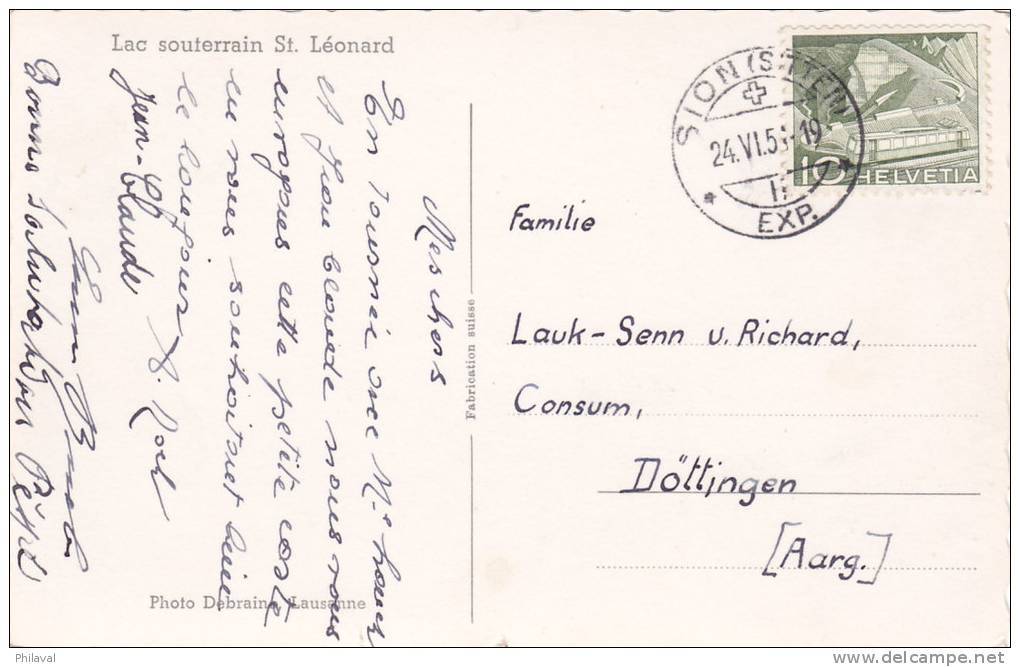 Lac souterrain St. Léonard
Mes chers
En tournée avec Mr
et Jean Claude nous vous
envoyons cette petite carte
en vous souhaitant bien
le bonjour
Jean-Claude
Photo Debraine, Lausanne
Fabrication suisse
SION (SITTEN)
24.VI.53-19
EXP.
10 HELVETIA
Familie
Lauk-Senn u. Richard,
Consum,
Döttingen
[Aarg.]
Philaval
delcampe.net